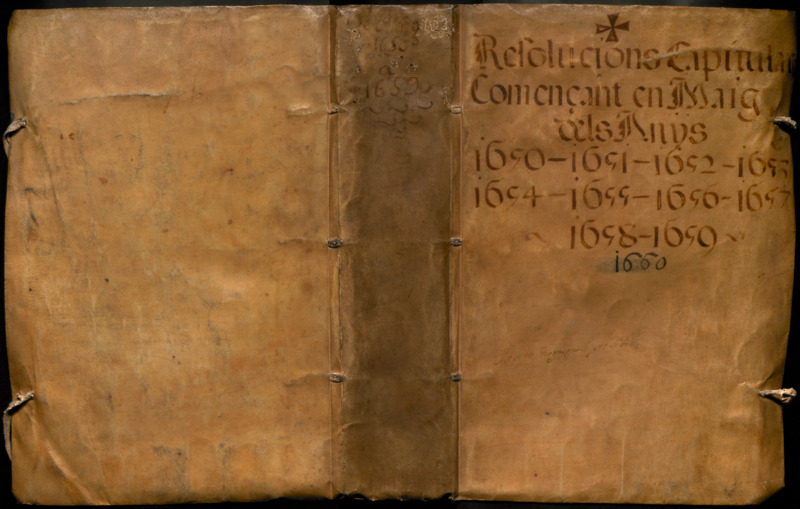 1659
Resolucions Capitular
Començant en Maig
dels Anys
1650-1651-1652-1653
1654-1655-1656-1657
1658-1659
1660